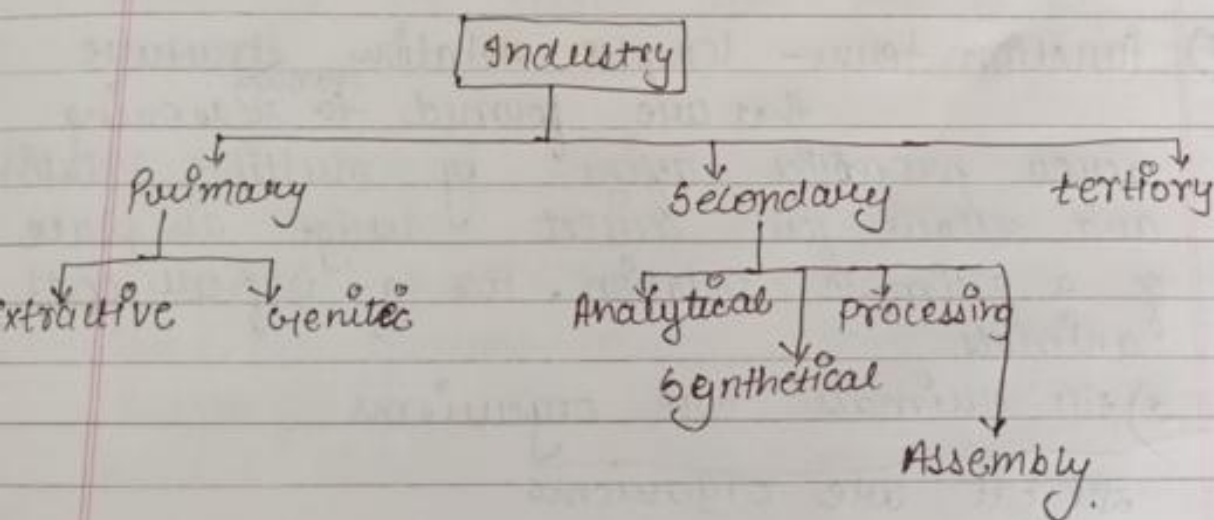 Industry
Primary Secondary tertiory
xtractive Genitic Analytical Processing
Synthetical
Assembly.